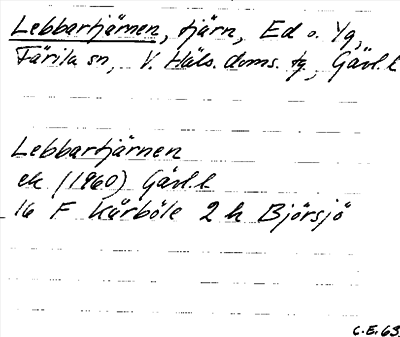 Lebbartjärnen, tjärn, Ed o. Yg,
Färila sn, V. Häls. doms. tg, Gävl. l
Lebbartjärnen
ek (1960) Gävl. l
16 F Kårböle 2 h Björsjö
C.E. 63.